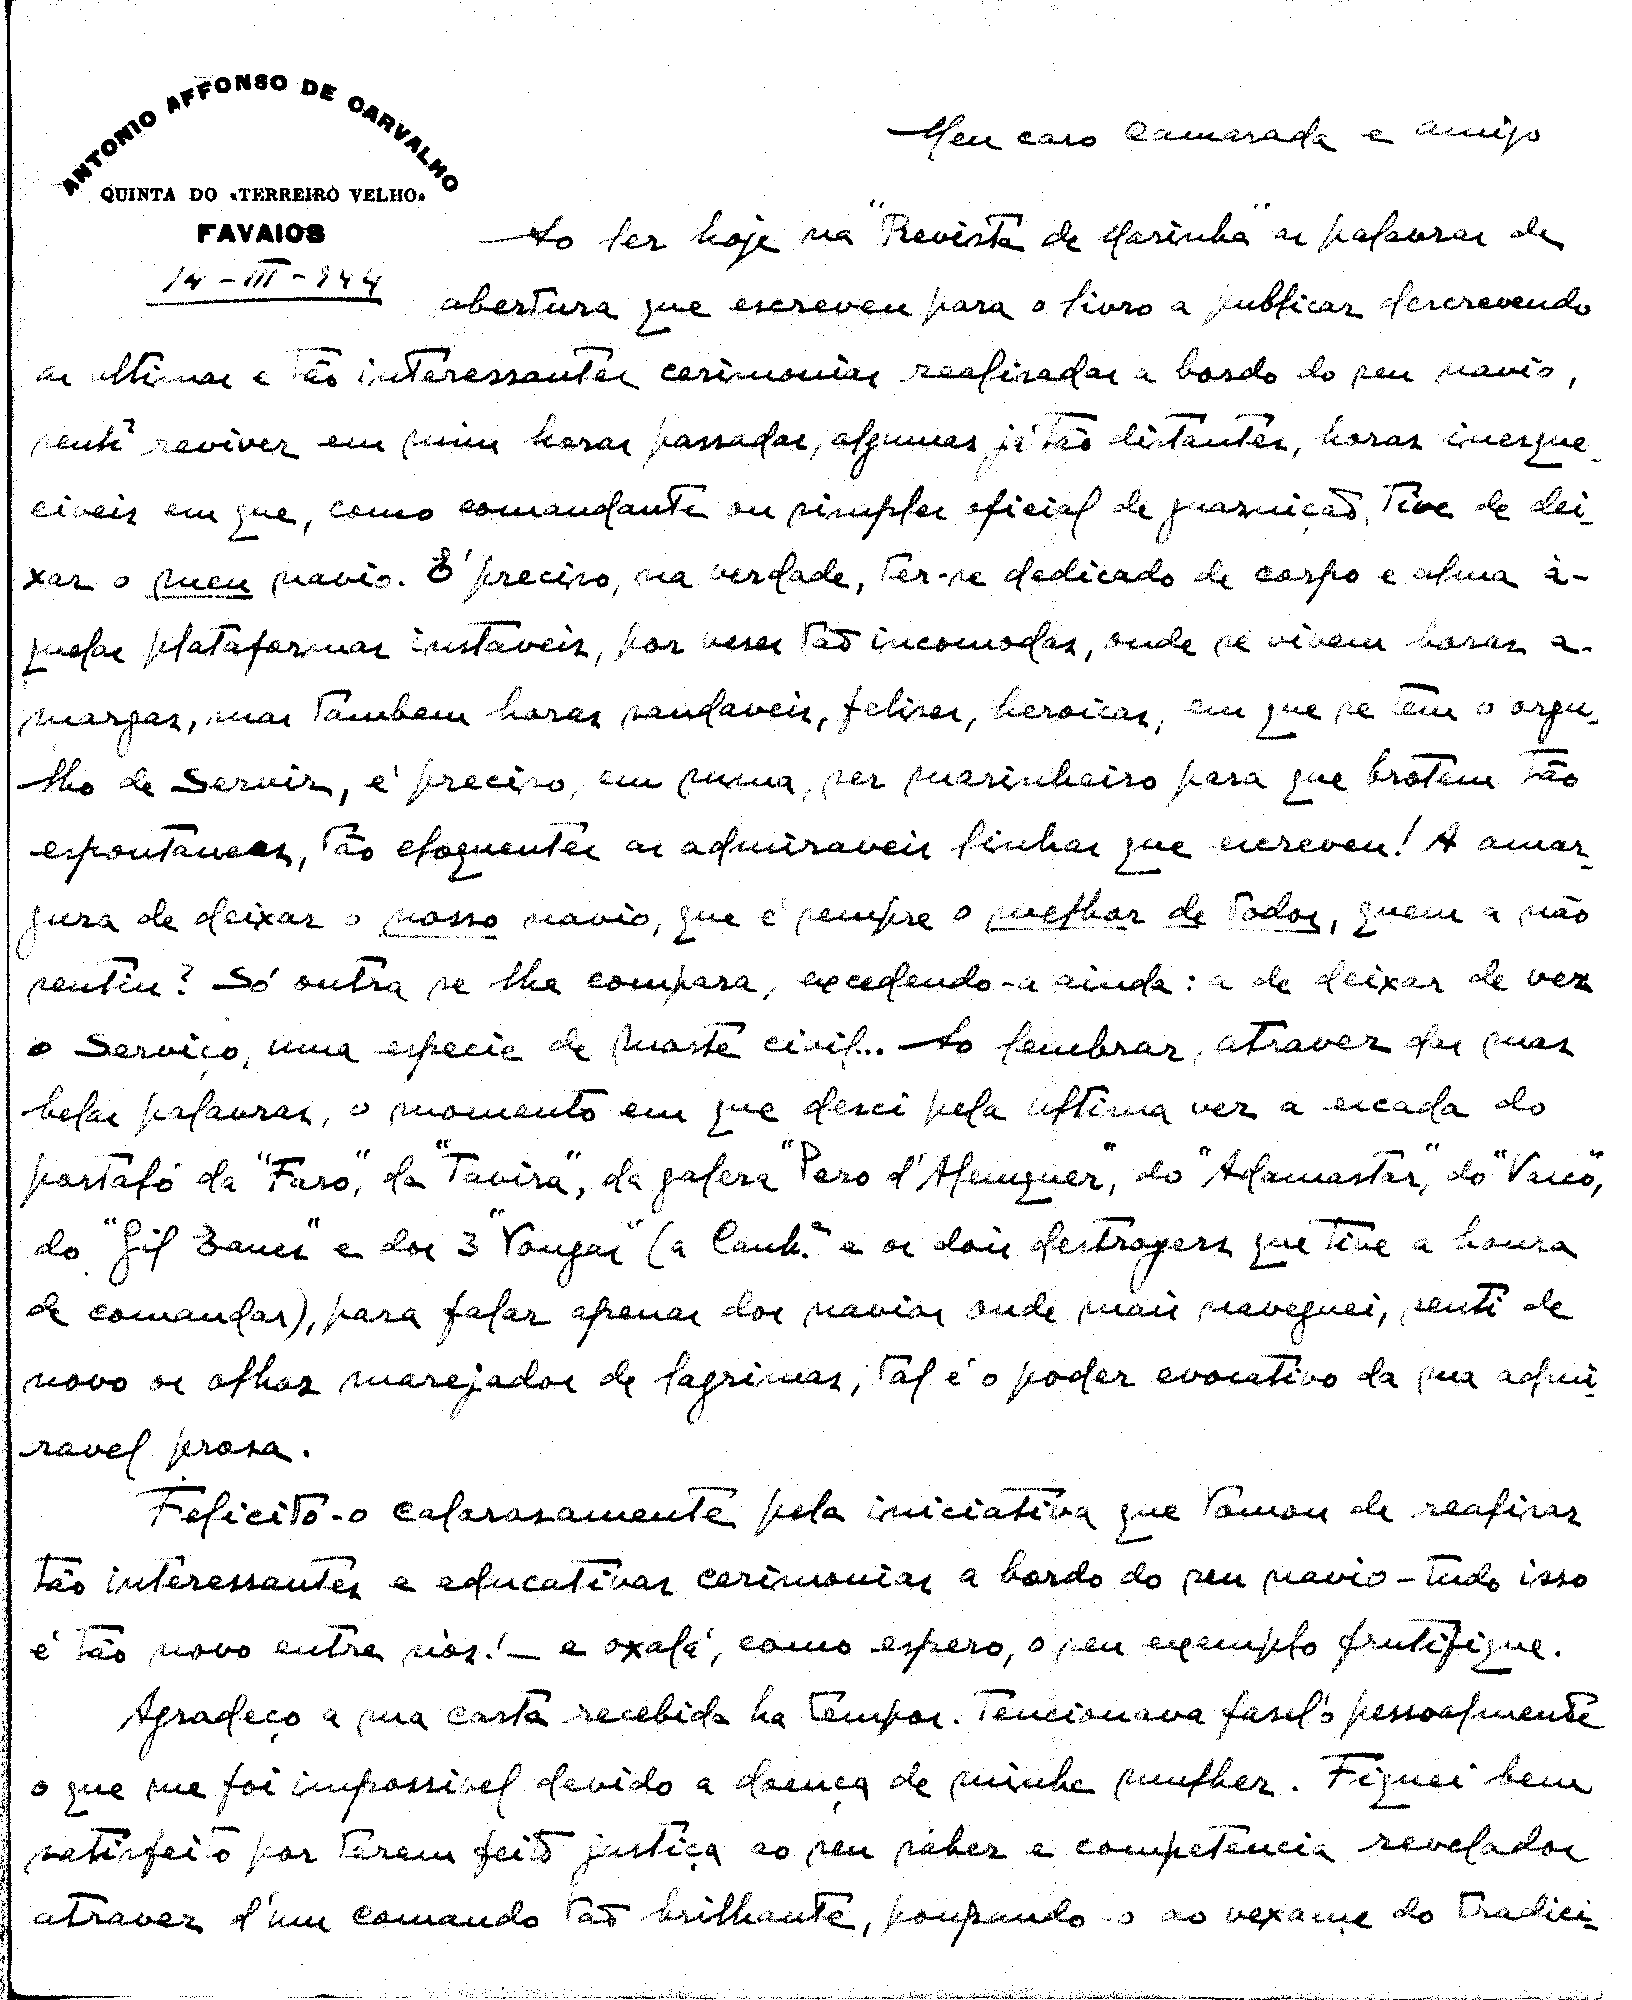 ANTONIO AFFONSO DE CARVALHO
QUINTA DO «TERREIRO VELHO»
FAVAIOS
14-III-944
Meu caro Camarada e amigo
Ao ler hoje na "Revista de Marinha" as palavras de
abertura que escreveu para o livro a publicar descrevendo
as ultimas e tão interessantes cerimonias realisadas a bordo do seu navio,
senti reviver em mim horas passadas, algumas já tão distantes, horas inesque-
civeis em que, como comandante ou simples oficial de guarnição, tive de dei-
xar o meu navio. É preciso, na verdade, ter-se dedicado de corpo e alma à-
quelas plataformas instaveis, por veses tão incomodas, onde se vivem horas a-
margas, mas tambem horas saudaveis, felises, heroicas, em que se tem o orgu-
lho de Servir, é preciso, em suma, ser marinheiro para que brotem tão
espontaneas, tão eloquentes as admiraveis linhas que escreveu! A amar-
gura de deixar o nosso navio, que é sempre o melhor de todos, quem a não
sentiu? Só outra se lhe compara, excedendo-a ainda: a de deixar de vez
o Serviço, uma especie de morte civil... Ao lembrar, atravez das suas
belas palavras, o momento em que desci pela ultima vez a escada do
portaló da "Faro", da "Tavira", da galera "Pero d'Alenquer", do "Adamastor", do "Vasco",
do "Gil Eanes" e dos 3 "Vougas" (a Canh.ª e os dois destroyers que tive a honra
de comandar), para falar apenas dos navios onde mais naveguei, senti de
novo os olhos marejados de lagrimas, tal é o poder evocativo da sua admi-
ravel prosa.
Felicito-o calorosamente pela iniciativa que tomou de realisar
tão interessantes e educativas cerimonias a bordo do seu navio - tudo isso
é tão novo entre nós! - e oxalá, como espero, o seu exemplo frutifique.
Agradeço a sua carta recebida ha tempos. Tencionava fasel'o pessoalmente
o que me foi impossivel devido a doença de minha mulher. Fiquei bem
satisfeito por terem feito justiça ao seu saber e competencia revelados
atravez d'um comando tão brilhante, poupando-o ao vexame do tradici-